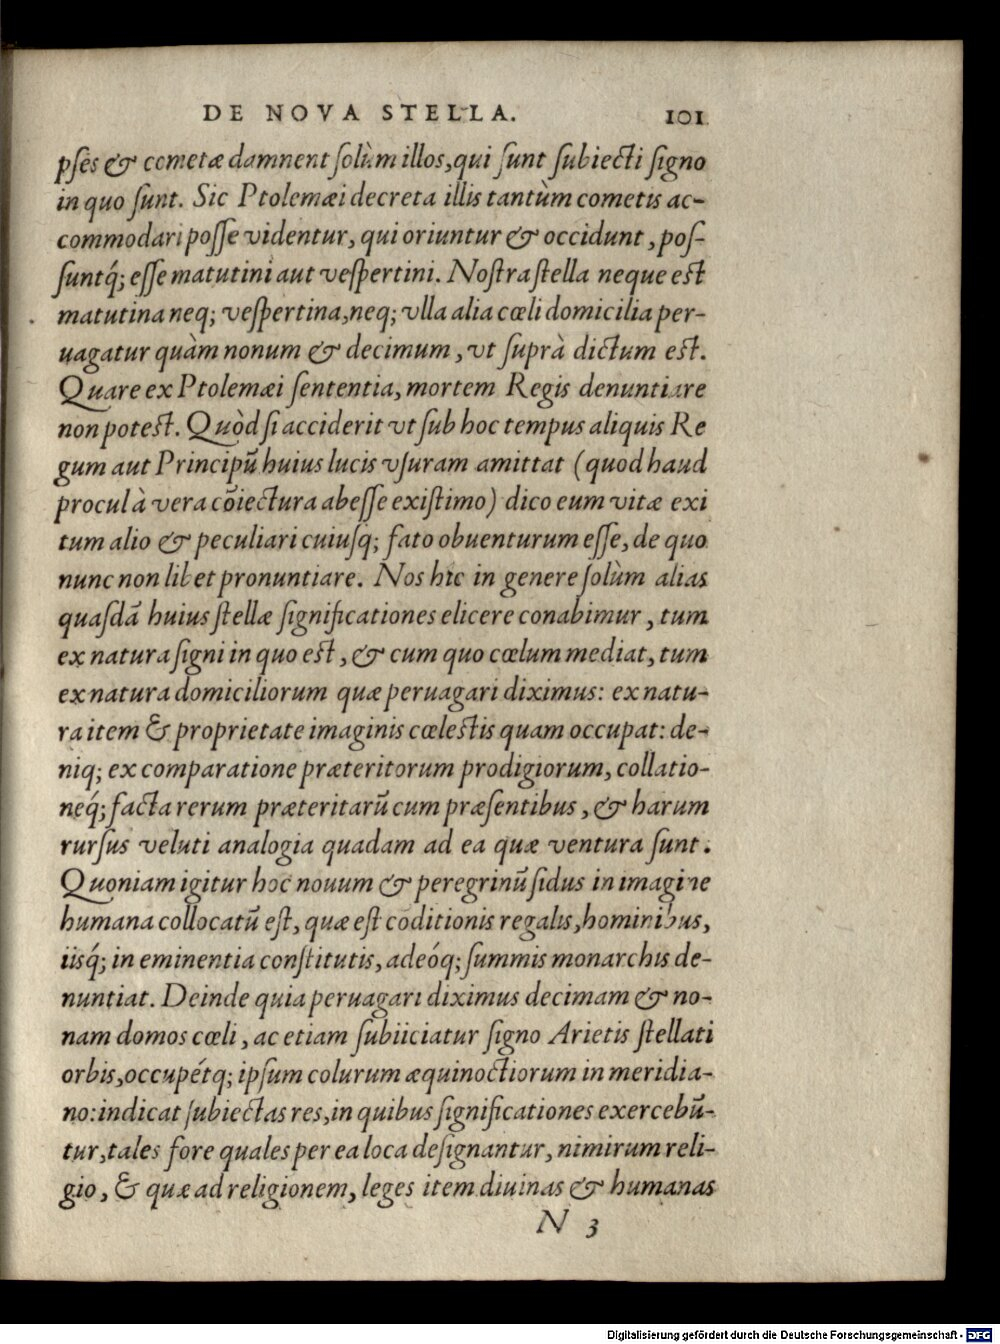 DE NOVA STELLA. 101
pses & cometæ damnent solùm illos, qui sunt subiecti signo
in quo sunt. Sic Ptolemæi decreta illis tantùm cometis ac-
commodari posse videntur, qui oriuntur & occidunt, pos-
suntq́; esse matutini aut vespertini. Nostra stella neque est
matutina neq; vespertina, neq; vlla alia cœli domicilia per-
uagatur quàm nonum & decimum, vt suprà dictum est.
Quare ex Ptolemæi sententia, mortem Regis denuntiare
non potest. Quòd si acciderit vt sub hoc tempus aliquis Re
gum aut Principũ huius lucis vsuram amittat (quod haud
procul à vera cõiectura abesse existimo) dico eum vitæ exi
tum alio & peculiari cuiusq; fato obuenturum esse, de quo
nunc non libet pronuntiare. Nos hic in genere solùm alias
quasdã huius stellæ significationes elicere conabimur, tum
ex natura signi in quo est, & cum quo cœlum mediat, tum
ex natura domiciliorum quæ peruagari diximus: ex natu-
ra item & proprietate imaginis cœlestis quam occupat: de-
niq; ex comparatione præteritorum prodigiorum, collatio-
neq́; facta rerum præteritarũ cum præsentibus, & harum
rursus veluti analogia quadam ad ea quæ ventura sunt.
Quoniam igitur hoc nouum & peregrinũ sidus in imagine
humana collocatũ est, quæ est cõditionis regalis, hominibus,
iisq́; in eminentia constitutis, adeóq; summis monarchis de-
nuntiat. Deinde quia peruagari diximus decimam & no-
nam domos cœli, ac etiam subiiciatur signo Arietis stellati
orbis, occupétq; ipsum colurum æquinoctiorum in meridia-
no: indicat subiectas res, in quibus significationes exercebũ-
tur, tales fore quales per ea loca designantur, nimirum reli-
gio, & quæ ad religionem, leges item diuinas & humanas
N 3
Digitalisierung gefördert durch die Deutsche Forschungsgemeinschaft - DFG